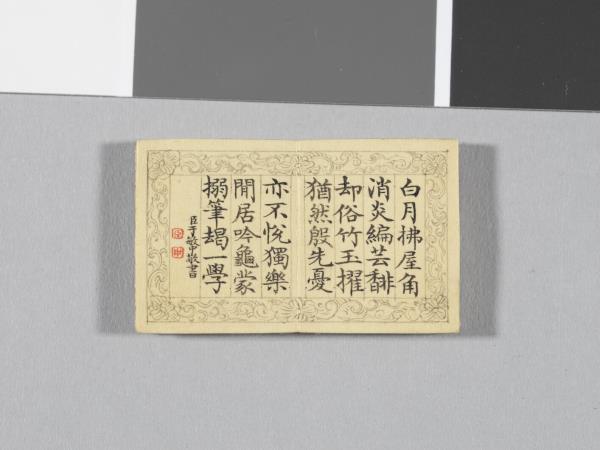 白月拂屋角
消炎編芸馡
却俗竹玉擢
猶然殷先憂
亦不悅獨樂
閒居吟龜蒙
搦筆朅一學
臣于敏中敬書